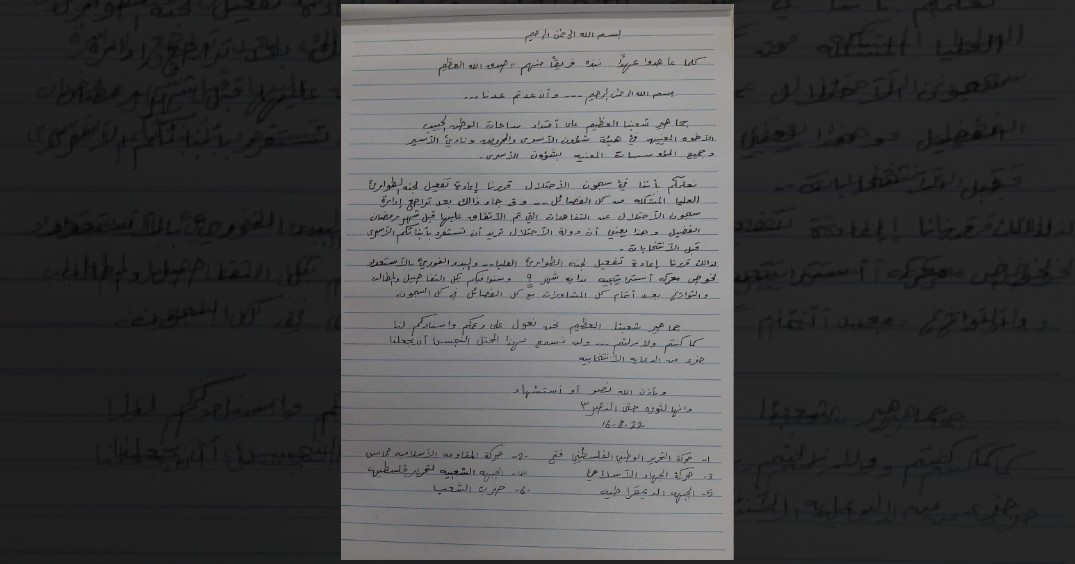 بسم الله الرحمن الرحيم
كلما عاهدوا عهداً نبذه فريقاً منهم "صدق الله العظيم
بسم الله الرحمن الرحيم --- وأن عدتم عدنا ---
جماهير شعبنا العظيم على أمتداد ساحات الوطن الحبيب
الأخوه المعنيين في هيئة شؤون الأسرى والمحررين ونادي الأسير
وجميع المؤسسات المعنيه بشؤون الأسرى .
نعلمكم بأننا في سجون الأحتلال قررنا إعادة تفعيل لجنه الطوارئ
العليا المشكله من كل الفصائل -- وقد جاء ذالك بعد تراجع إدارة
سجون الأحتلال عن التفاهمات التي تم الأتفاق عليها قبل شهر رمضان
الفضيل وهذا يعني أن دولة الأحتلال تريد أن تستفرد بأبنائكم الأسرى
قبل الأنتخابات -
لذالك قررنا إعادة تفعيل لجنه الطوارئ العليا -- والبدو الفوري بالأستعداد
لخوض معركه أستراتيجيه بدايه شهر 9 وسنوافيكم بكل التفاصيل والمطالب
والتواريخ بعد أتمام كل المشاورات مع كل الفصائل في كل السجون
جماهير شعبنا العظيم نحن نعول على دعمكم واسنادكم لنا
كما كنتم ولا زلتم --- ولن نسمح لهذا المحتل أن يجعلنا
جزء من الدعايه الأنتخابيه
وبأذن الله نصر أو أستشهاد
وانها لثوره حتى النصر
16-8-22
1- حركة التحرير الوطني الفلسطيني فتح 2- حركة المقاومه الأسلاميه حماس
3- حركة الجهاد الأسلامي 4- الجبهه الشعبيه لتحرير فلسطين
5- الجبهه الديمقراطيه 6- حزب الشعب